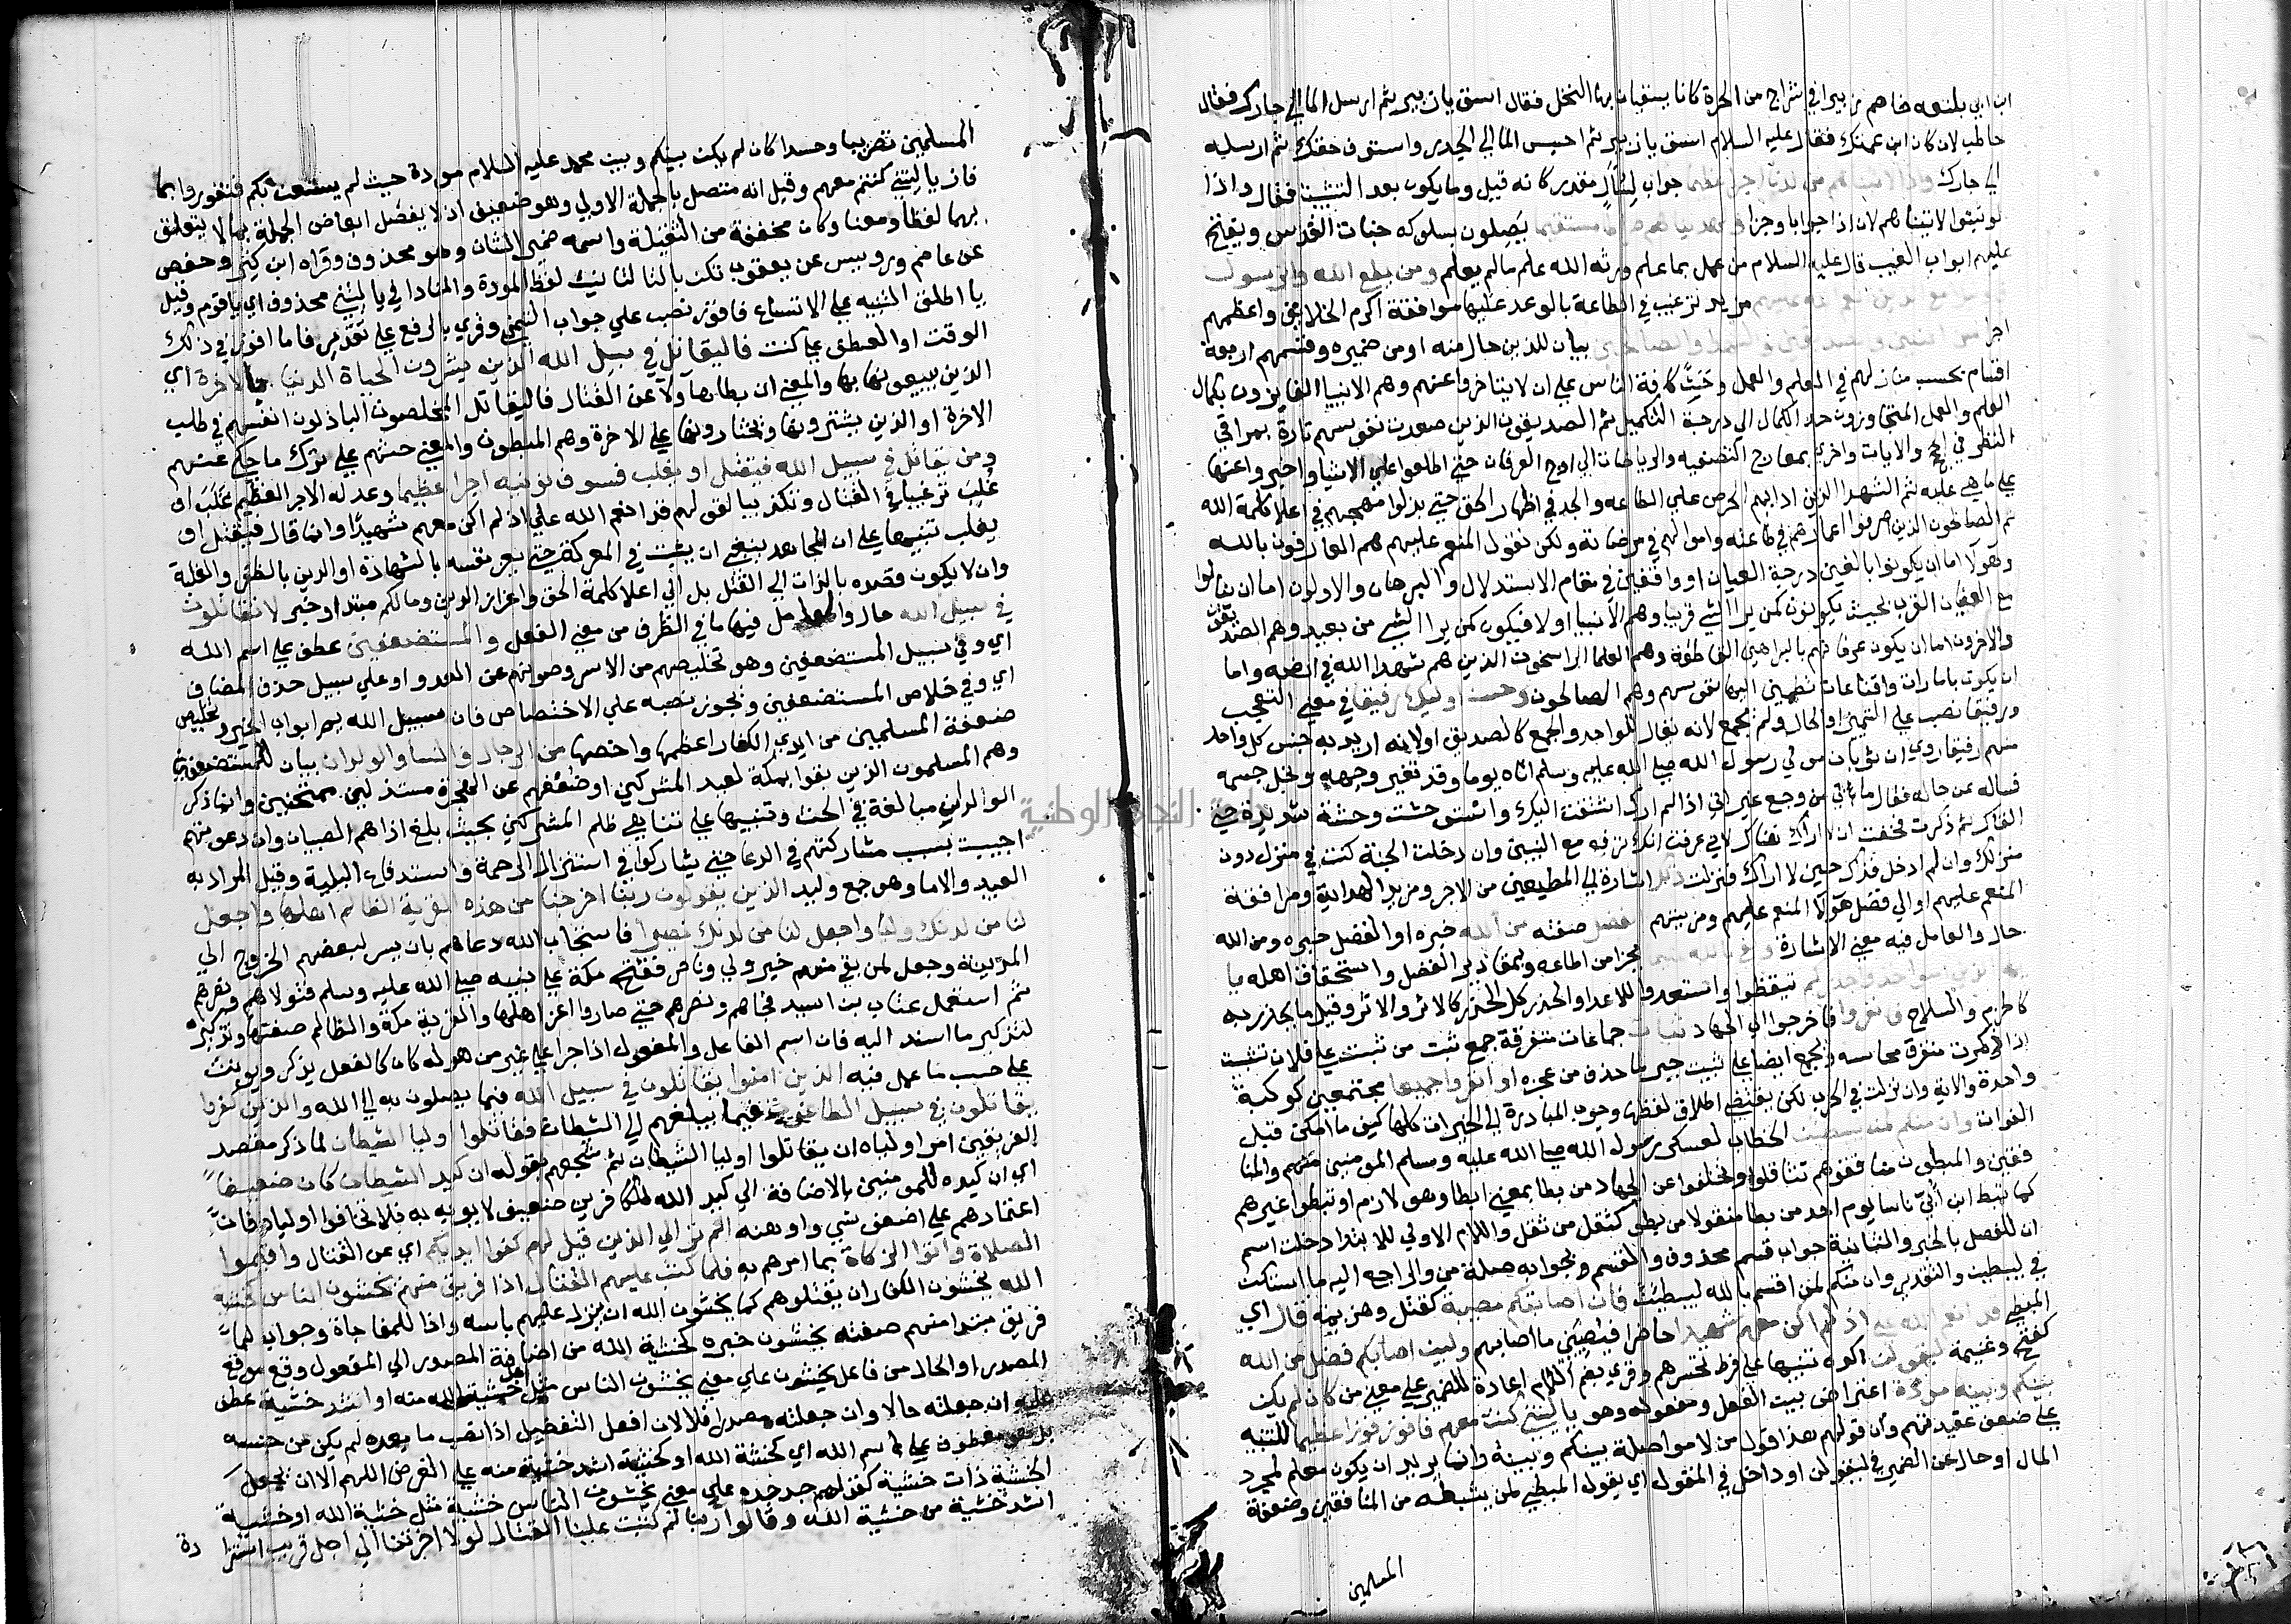 ابن ابي بلتعه خاصم زبيرا في شراج من الحرة كانا يسقيان بها النخل فقال اسق يا زبير ثم ارسل الما الي جارك فقال
حاطب لان كان ابن عمتك فقال عليه السلام اسق يا زبير ثم احبس الما الي الجدر واستوف حقك ثم ارسله
الي جارك واذا لاتيناهم من لدنا اجرا عظيما جواب لسؤال مقدر كانه قيل وما يكون بعد التثبيت فقال واذا
لو تثبتوا لاتيناهم لان اذا جواب وجزا ولهديناهم صراطا مستقيما يصلون بسلوكه جناب القدس ويفتح
عليهم ابواب الغيب قال عليه السلام من عمل بما علم ورثه الله علم مالم يعلم ومن يطع الله والرسول
فاوليك مع الذين انعم الله عليهم مزيد ترغيب في الطاعة بالوعد عليها موافقة اكرم الخلايق واعظمهم
اجرا من النبيين والصديقين والشهدا والصالحين بيان للذين حال منه او من ضميره وقسمهم اربعة
اقسام بحسب منازلهم في العلم والعمل وحث كافة الناس علي ان لا يتاخروا عنهم وهم الانبيا الفايزون بكمال
العلم والعمل المتجاوزون حد الكمال الي درجة التكميل ثم الصديقون الذين صعدت نفوسهم تارة بمراقي
النظر في الحجج والايات واخري بمعارج التصفيه والرياضات الي اوج العرفان حتي اطلعوا علي الاشيا واخبروا عنها
علي ما هي عليه ثم الشهدا الذين ادابهم الحرص علي الطاعه والجد في اظهار الحق حتي بذلوا مهجهم في اعلا كلمة الله
ثم الصالحون الذين صرفوا اعمارهم في طاعته واموالهم في مرضاته ولكن نقول المنعم عليهم هم العارفون بالله
وهولا اما ان يكونوا بالغين درجة العيان او واقفين في مقام الاستدلال والبرهان والاولون اما ان ينالوا
مع العيان القرب بحيث يكونون كمن يرا الشي قريبا وهم الانبيا اولا فيكون كمن يرا الشي من بعيد وهم الصديقون
والاخرون اما ان يكون عرفانهم بالبراهين القاطعة وهم العلما الراسخون الذين هم شهدا الله في ارضه واما
ان يكون بامارات واقناعات تطمين اليها نفوسهم وهم الصالحون وحسن اوليك رفيقا في معني التعجب
ورفيقا نصب علي التميز او الحال ولم يجمع لانه يقال للواحد والجمع كالصديق اولانه اريد به حسن كل واحد
منهم رفيقا روي ان ثوبان مولي رسول الله صلي الله عليه وسلم اتاه يوما وقد تغير وجهه ونحل جسمه
فساله عن حاله فقال ما بي من وجع غير اني اذا لم ارك اشتقت اليك واستوحشت وحشة شديدة حتي
القاك ثم ذكرت فخفت ان لا اراك هناك لاني عرفت انك ترفع مع النبيين وان دخلت الجنة كنت في منزل دون
منزلك وان لم ادخل فذاك حين لا اراك فنزلت ذلك اشارة الي المطيعين من الاجر ومزيد الهداية ومرافقة
المنعم عليهم او الي فضل هولا المنعم عليهم ومزيتهم الفضل صفته من الله خبره او الفضل خبره ومن الله
حال والعامل فيه معني الاشارة وكفي بالله عليما بجزا من اطاعه وبمقادير الفضل واستحقاق اهله يا
ايها الذين امنوا خذوا حذركم تيقظوا واستعدوا للاعدا والحذر كل الحذر كالاثر والاثر وقيل ما يحذر به
كالحزم والسلاح فانفروا فاخرجوا الي الجهاد ثبات جماعات متفرقة جمع ثبت من ثبت علي فلان تثبية
اذا ذكرت متفرق محاسنه ويجمع ايضا علي ثبيت جبر ما حذف من عجزه او انفروا جميعا مجتمعين كوكبة
واحدة والاية وان نزلت في الحرب لكن يقتضي اطلاق لفظها وجوب المبادرة الي الخيرات كلها كيف ما امكن قبل
الفوات وان منكم لمن ليبطئن الخطاب لعسكر رسول الله صلي الله عليه وسلم المومنين منهم والمنا
فقين والمبطون منافقوهم تثاقلوا وتخلفوا عن الجهاد من بطا بمعني ابطا وهو لازم او ثبطوا غيرهم
كما ثبط ابن ابي ناسا يوم احد من بطا منقولا من بطو كثقل من ثقل واللام الاولي للابتدا دخلت اسم
ان للفصل بالخبر والثانية جواب قسم محذوف والقسم وبجوابه صلة من والراجع اليه ما استكن
في ليبطين والتقدير وان منكم لمن اقسم بالله ليبطئن فان اصابتكم مصيبة كقتل وهزيمة قال اي
المبطي قد انعم الله علي اذ لم اكن معهم شهيدا حاضرا فيصيبني ما اصابهم وليين اصابكم فضل من الله
كفتح وغنيمة ليقولن اكده تنبيها علي فرط تحسرهم وقري بضم اللام اعادة للضمير علي معني من كان لم يكن
بينكم وبينه مودة اعتراض بين الفعل ومفعوله وهو يا ليتني كنت معهم فافوز فوزا عظيما للتنبيه
علي ضعف عقيدتهم وان قولهم هذا قول من لا مواصلة بينكم وبينه وانما يريد ان يكون معكم لمجرد
المال او حال عن الضمير في ليقولن او داخل في المقول اي يقول المبطي لمن يثبطه من المنافقين وضعفة
المسلمين
المسلمين تضريبا وحسدا كان لم يكن بينكم وبين محمد عليه السلام مودة حيث لم يستعن بكم فتفوزوا بما
فاز يا ليتني كنتم معهم وقيل انه متصل بالجملة الاولي وهو ضعيف اذ لا يفصل ابعاض الجملة بما لا يتعلق
بهما لفظا ومعنا وكان مخففة من الثقيلة واسمه ضمير الشان وهو محذوف وقراه ابن كثير وحفص
عن عاصم ورويس عن يعقوب تكن بالتا لتانيث لفظ المودة والمنادا في يا ليتني محذوف اي يا قوم وقيل
يا اطلق التنبيه علي الاتساع فافوز نصب علي جواب التمني وقري بالرفع علي تقدير فانا افوز في ذلك
الوقت او العطف علي كنت فاليقاتل في سبيل الله الذين يشرون الحياة الدنيا بالاخرة اي
الذين يبيعونها بها والمعني ان بطا هولا عن القتال فاليقاتل المخلصون الباذلون انفسهم في طلب
الاخرة او الذين يشترونها ويختارونها علي الاخرة وهم المبطون والمعني حثهم علي ترك ما حكي عنهم
ومن يقاتل في سبيل الله فيقتل او يغلب فسوف نوتيه اجرا عظيما وعد له الاجر العظيم غلب او
غلب ترغيبا في القتال وتكذيبا لقولهم قد انعم الله علي اذ لم اكن معهم شهيدا وانما قال فيقتل او
يغلب تنبيها علي ان المجاهد ينبغي ان يثبت في المعركة حتي يعز نفسه بالشهادة او الدين بالظفر والغلبة
وان لا يكون قصده بالذات الي القتل بل الي اعلا كلمة الحق واعزاز الدين ومالكم مبتدا وخبر لا تقاتلون
في سبيل الله حال والعامل فيها ما في الظرف من معني الفعل والمستضعفين عطف علي اسم الله
اي وفي سبيل المستضعفين وهو تخليصهم من الاسر وصونهم عن العدو او علي سبيل حذف المضاف
اي وفي خلاص المستضعفين ويجوز نصبه علي الاختصاص فان سبيل الله يعم ابواب الخير وتخليص
ضعفة المسلمين من ايدي الكفار اعظمها واخصها من الرجال والنسا والولدان بيان للمستضعفين
وهم المسلمون الذين بقوا بمكة لصد المشركين او ضعفهم عن الهجرة مستذلين ممتحنين وانما ذكر
الوالدين مبالغة في الحث وتنبيها علي تناهي ظلم المشركين بحيث بلغ اذاهم الصبيان وان دعوتهم
اجيبت بسبب مشاركتهم في الدعا حتي يشاركوا في استنزال الرحمة واستدفاع البلية وقيل المراد به
العبيد والاما وهو جمع وليد الذين يقولون ربنا اخرجنا من هذه القرية الظالم اهلها واجعل
لنا من لدنك وليا واجعل لنا من لدنك نصيرا فاستجاب الله دعاهم بان يسر لبعضهم الخروج الي
المدينة وجعل لمن بقي منهم خير ولي وناصر ففتح مكة علي نبيه صلي الله عليه وسلم فتولاهم ونصرهم
ثم استعمل عتاب بن اسيد فحماهم ونصرهم حتي صاروا اعز اهلها والقرية مكة والظالم صفتها وتذكيره
لتذكير ما اسند اليه فان اسم الفاعل والمفعول اذا جرا علي غير من هو له كان كالفعل يذكر ويونث
علي حسب ما عمل فيه الذين امنوا يقاتلون في سبيل الله فيما يصلون به الي الله والذين كفروا
يقاتلون في سبيل الطاغوت فيما يبلغهم الي الشطان فقاتلوا اوليا الشيطان لما ذكر مقصد
الفريقين امر اولياه ان يقاتلوا اوليا الشيطان ثم شجعهم بقوله ان كيد الشيطان كان ضعيفا
اي ان كيده للمومنين بالاضافة الي كيد الله للكافرين ضعيف لا يوبه به فلا تخافوا اولياه فان
اعتمادهم علي اضعف شي واوهنه الم تر الي الذين قيل لهم كفوا ايديكم اي عن القتال واقيموا
الصلاة واتوا الزكاة بما امرهم به فلما كتب عليهم القتال اذا فريق منهم يخشون الناس كخشية
الله يخشون الكفار ان يقتلوهم كما يخشون الله ان ينزل عليهم باسه واذا للمفاجاة وجواب لما
فريق مبتدا منهم صفته يخشون خبره كخشية الله من اضافة المصدر الي المفعول وقع موقع
المصدر او الحال من فاعل يخشون علي معني يخشون الناس مثل اهل خشية الله منه او اشد خشية عطف
عليه ان جعلته حالا وان جعلته مصدرا فلا لان افعل التفضيل اذا نصب ما بعده لم يكن من جنسه
بل هو معطوف علي اسم الله اي كخشة الله او كخشية اشد خشية منه علي الفرض اللهم الا ان تجعل
الخشية ذات خشية كقولهم جد جده علي معني يخشون الناس خشية مثل خشية الله او خشية
اشد خشية من خشية الله وقالوا ربنا لم كتبت علينا القتال لولا اخرتنا الي اجل قريب استزا
دة